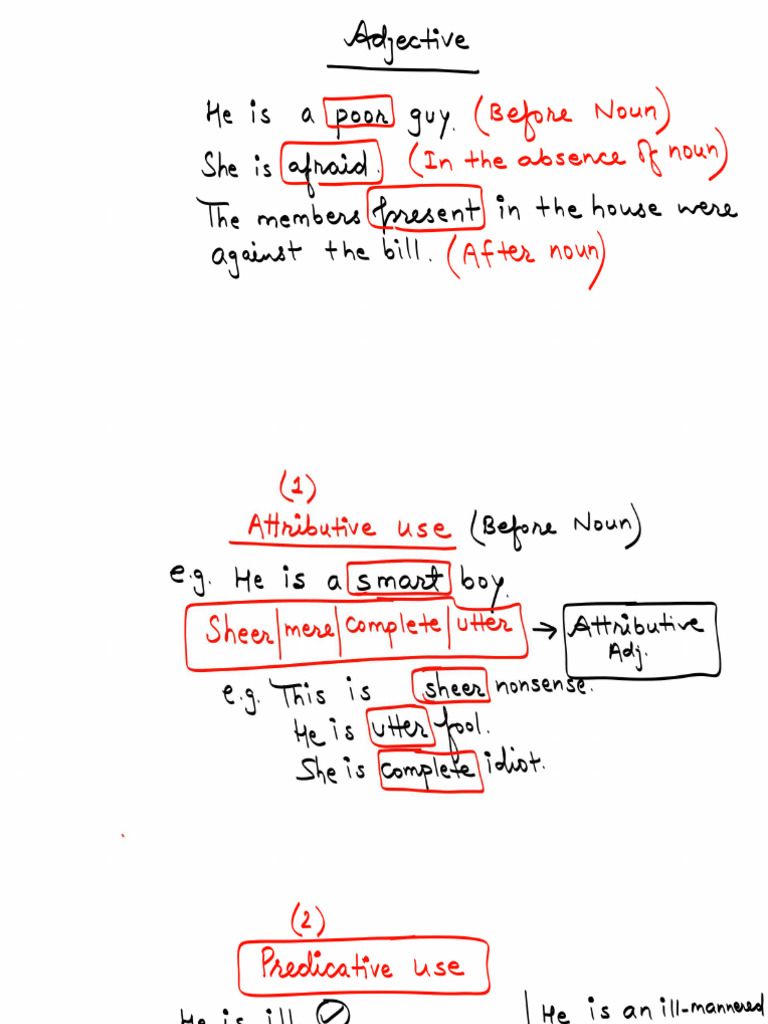 Adjective
He is a poor guy. (Before Noun)
She is afraid. (In the absence of noun)
The members present in the house were
against the bill. (After noun)
(1)
Attributive use (Before Noun)
e.g. He is a smart boy.
Sheer | mere | complete | utter → Attributive Adj.
e.g. This is sheer nonsense.
He is utter fool.
She is complete idiot.
(2)
Predicative use
He is ill ✓ | He is an ill-mannered